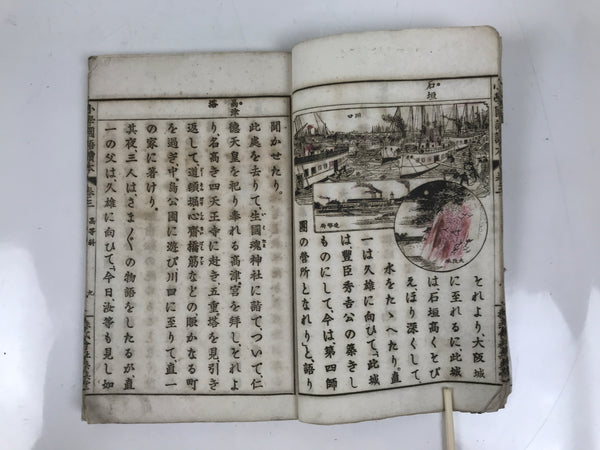 石垣
川口
造幣局
大阪城
それより、大阪城
に至れるに、此城
は石垣高くそび
え、ほり深くして、
水をたゝへたり。直
一は久雄に向ひて、「此城
は、豊臣秀吉公の築きし
ものにして、今は第四師
團の營所となれり」と、語り
高津
塔
聞かせたり。
此處を去りて、生國魂神社に詣で、ついで、仁
德天皇を祀り奉れる高津宮を拜し、それよ
り名高き四天王寺に赴き、五重塔を見、引き
返して、道頓堀、心齋橋筋などの賑かなる町
を過ぎ、中島公園に遊び、川口に至りて、直一
の家に著けり。
其夜三人は、さま〴〵の物語をしたるが、直
一の父は、久雄に向ひて、「今日、汝等も見し如
小學國語讀本 卷三 高等科 九